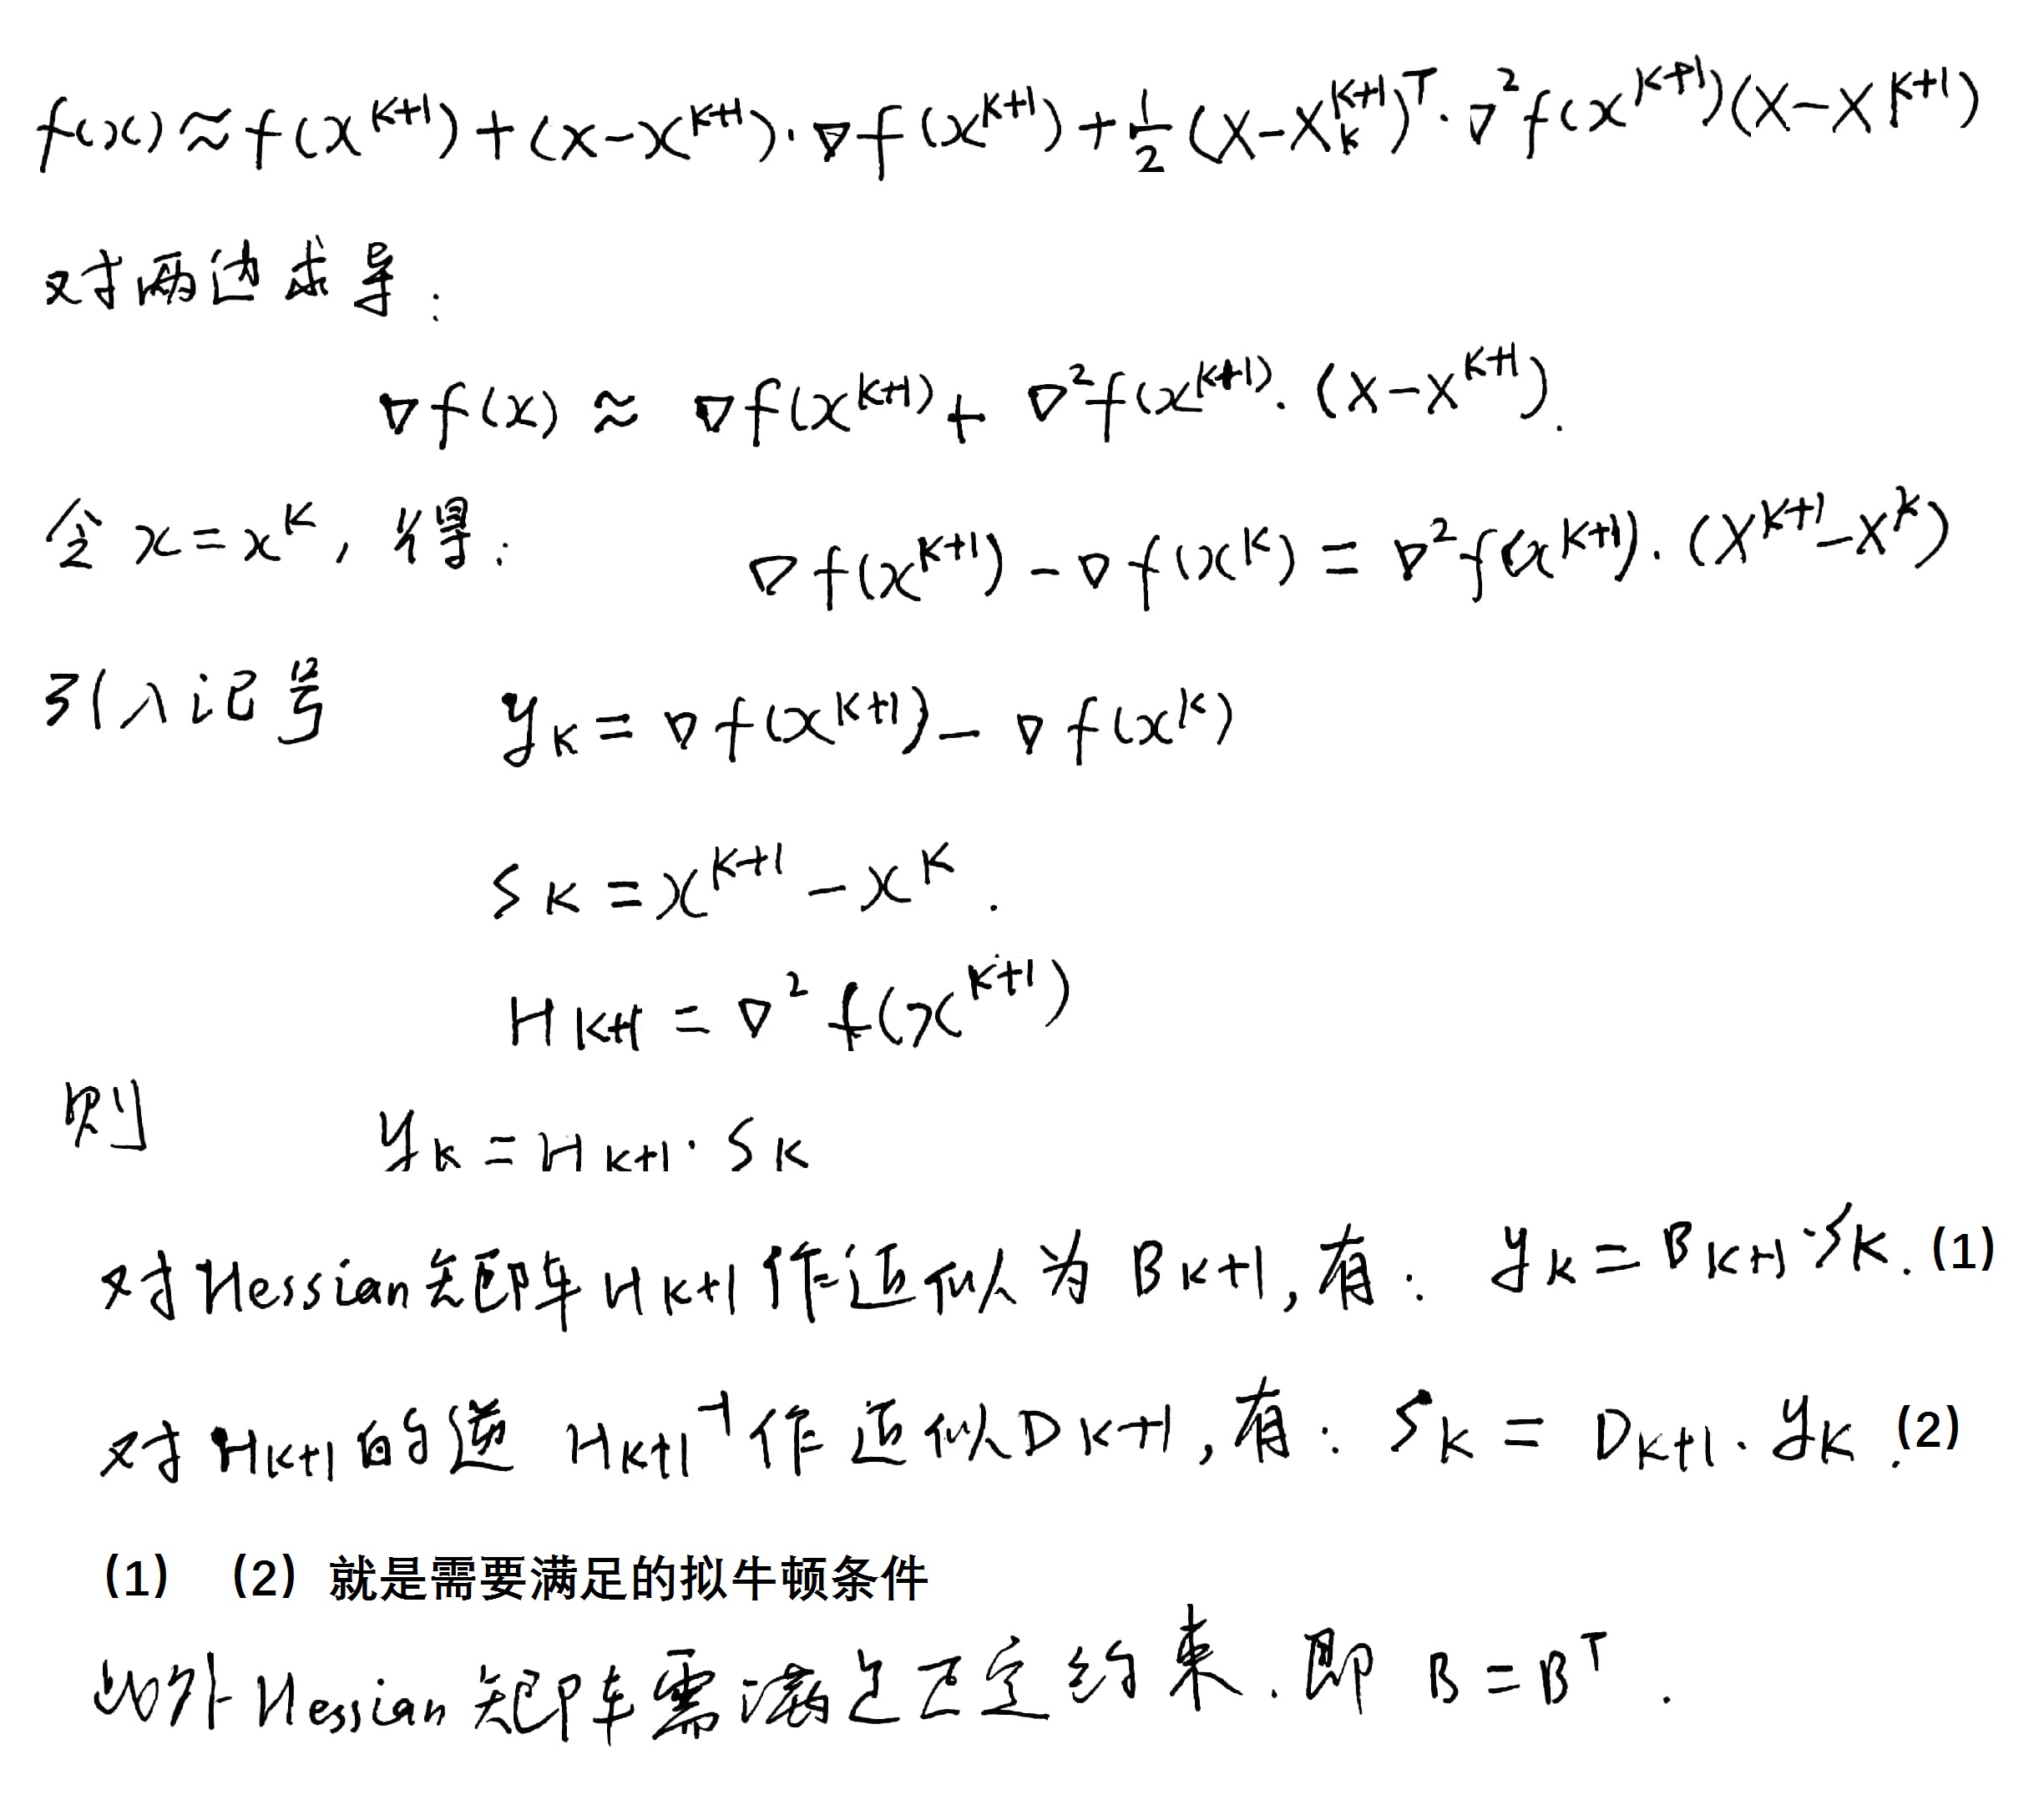 f(x) ≈ f(x^{k+1}) + (x-x^{k+1})·∇f(x^{k+1}) + \frac{1}{2}(x-x_k^{k+1})^T·∇²f(x^{k+1})(x-x^{k+1})
对两边求导:
∇f(x) ≈ ∇f(x^{k+1}) + ∇²f(x^{k+1})·(x-x^{k+1}).
令 x=x^k, 得: ∇f(x^{k+1}) - ∇f(x^k) = ∇²f(x^{k+1})·(x^{k+1}-x^k)
引入记号 y_k = ∇f(x^{k+1}) - ∇f(x^k)
s_k = x^{k+1} - x^k.
H_{k+1} = ∇²f(x^{k+1})
则 y_k = H_{k+1}·s_k
对Hessian矩阵H_{k+1}作近似为B_{k+1},有: y_k = B_{k+1}·s_k. (1)
对H_{k+1}的逆 H_{k+1}^{-1}作近似D_{k+1},有: s_k = D_{k+1}·y_k. (2)
(1) (2) 就是需要满足的拟牛顿条件
此外Hessian矩阵需满足正定约束.即 B=B^T.